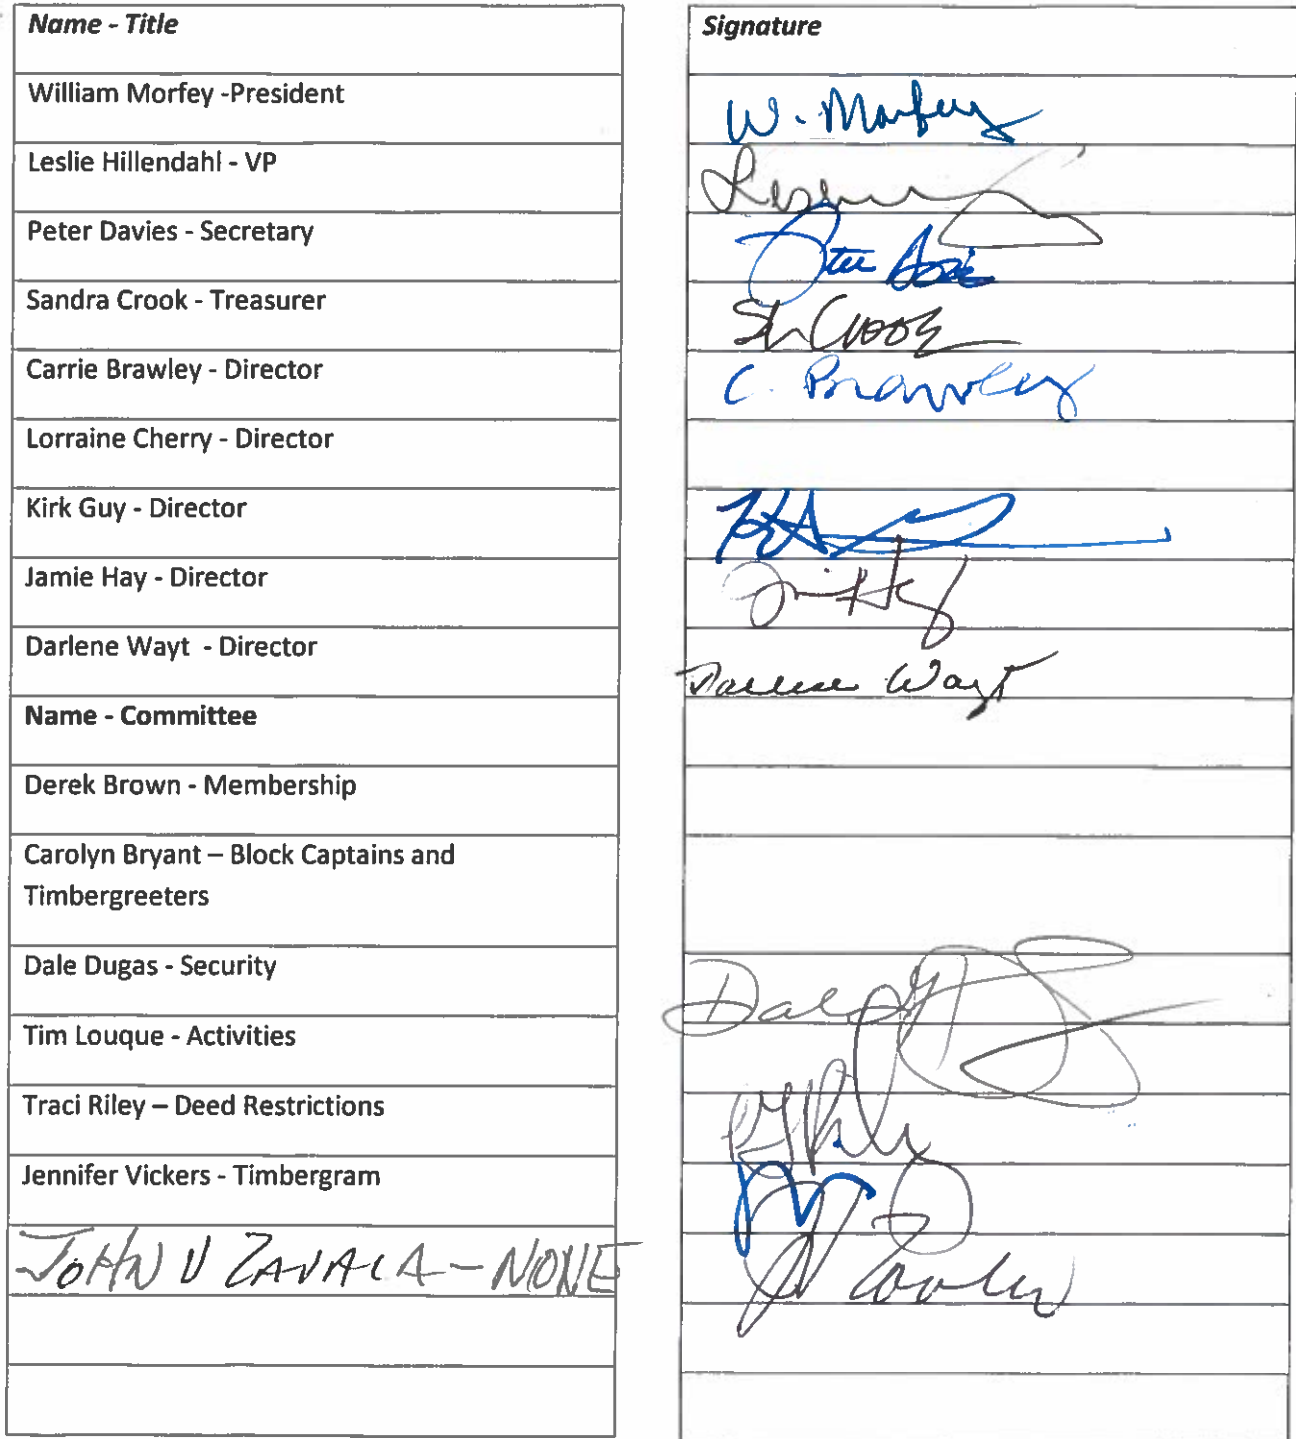 Name - Title
Signature
William Morfey -President
W. Morfey
Leslie Hillendahl - VP
Peter Davies - Secretary
Sandra Crook - Treasurer
Crook
Carrie Brawley - Director
C. Brawley
Lorraine Cherry - Director
Kirk Guy - Director
Jamie Hay - Director
Darlene Wayt  - Director
Darlene Wayt
Name - Committee
Derek Brown - Membership
Carolyn Bryant – Block Captains and
Timbergreeters
Dale Dugas - Security
Dale
Tim Louque - Activities
Traci Riley – Deed Restrictions
Jennifer Vickers - Timbergram
JOHN V ZAVALA - NONE